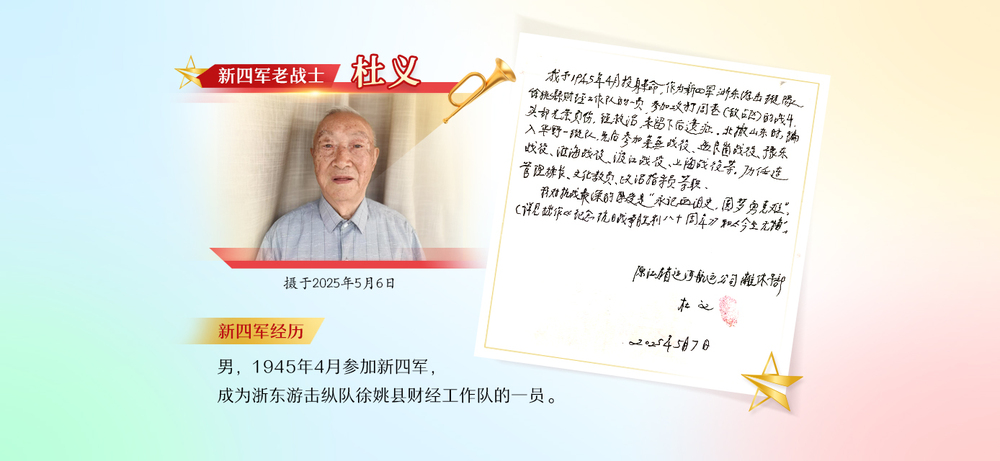 新四军老战士 杜义
摄于2025年5月6日
新四军经历
男，1945年4月参加新四军，
成为浙东游击纵队徐姚县财经工作队的一员。
我于1945年4月投身革命，作为新四军浙东游击纵队
徐姚县财经工作队的一员，参加攻打周巷(敌占区)的战斗，
头部光荣负伤，经救治，未留下后遗症。北撤山东时，编
入华野一纵队，先后参加莱芜战役、孟良崮战役、豫东
战役、淮海战役、渡江战役、上海战役等。历任连
管理排长、文化教员、政治指导员等职。
我对抗战最深的感受是“永记血泪史，圆梦勇克难”。
(详见拙作《纪念抗日战争胜利八十周年》和《今生无悔》)。
原江苏省运河航运公司离休干部
杜义
2025年5月7日